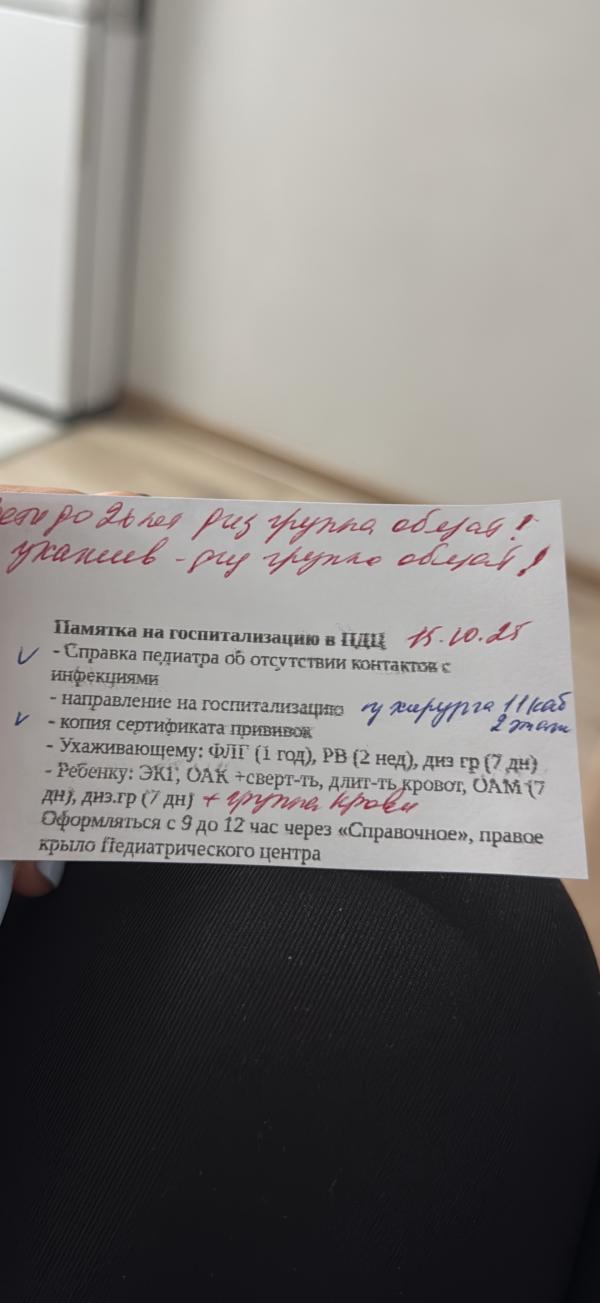 дети до 2х лет диз группа обязат!
ухажив - диз группа обязат!
Памятка на госпитализацию в ПДЦ 15.10.25
- Справка педиатра об отсутствии контактов с
инфекциями
- направление на госпитализацию у хирурга 11 каб
2 этаж
- копия сертификата прививок
- Ухаживающему: ФЛГ (1 год), РВ (2 нед), диз гр (7 дн)
- Ребенку: ЭКГ, ОАК +сверт-ть, длит-ть кровот, ОАМ (7
дн), диз.гр (7 дн) + группа крови
Оформляться с 9 до 12 час через «Справочное», правое
крыло Педиатрического центра